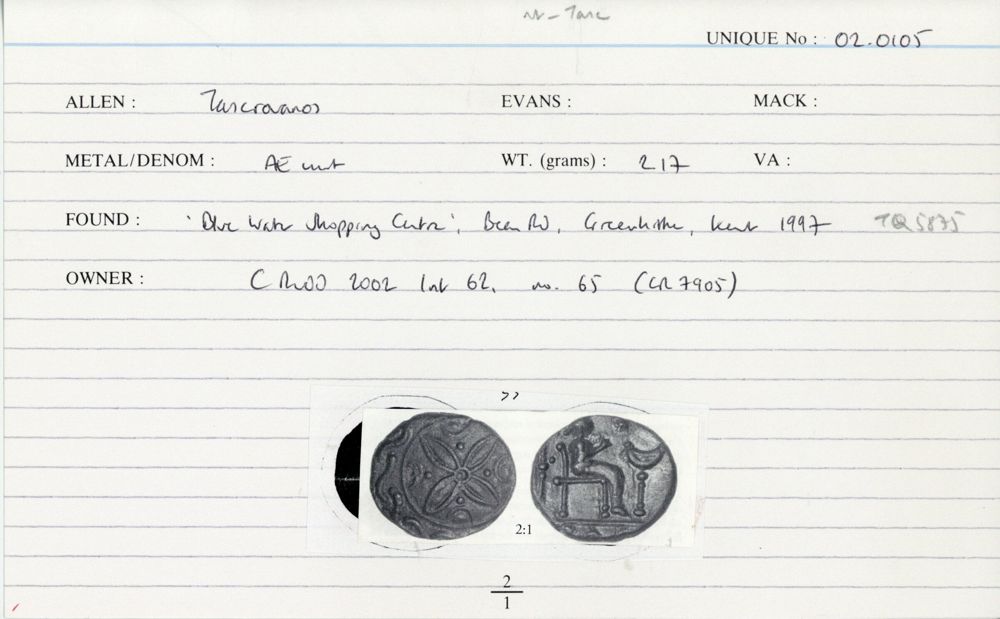 UNIQUE No : 02.0105
ALLEN : Tasciovanos EVANS : MACK :
METAL/DENOM : AE unit WT. (grams) : 2.17 VA :
FOUND : 'Blue Water Shopping Centre', Bean Rd, Greenhithe, Kent 1997 TQ5875
OWNER : C Rudd 2002 list 62, no. 65 (CR7905)
??
2:1
2
1